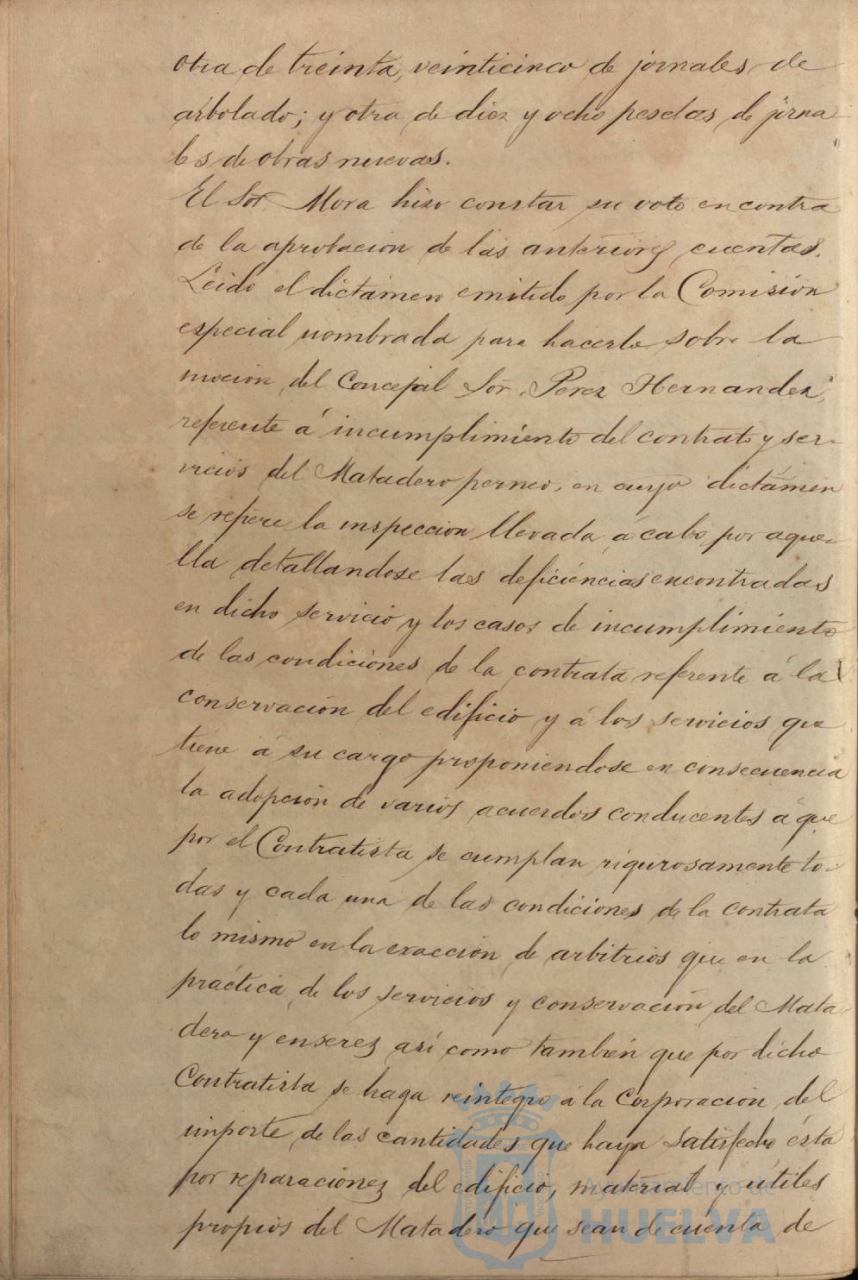 otra de treinta, veinticinco de jornales de
arbolado; y otra de diez y ocho pesetas de jorna
les de obras nuevas.
El Sor. Mora hizo constar su voto en contra
de la aprobacion de las anteriores cuentas.
Leido el dictámen emitido por la Comisión
especial nombrada para hacerlo sobre la
mocion del Concejal Sor. Perez Hernandez,
referente á incumplimiento del contrato y ser-
vicios del Matadero porneo, en cuyo dictámen
se refiere la inspeccion llevada á cabo por aque-
lla detallandose las deficiéncias encontradas
en dicho servicio y los casos de incumplimiento
de las condiciones de la contrata referente á la
conservación del edificio y á los servicios que
tiene á su cargo proponiendose en consecuencia
la adopción de varios acuerdos conducentes á que
por el Contratista se cumplan rigurosamente to-
das y cada una de las condiciones de la contrata
lo mismo en la exacción de arbitrios que en la
práctica de los servicios y conservación del Mata-
dero y enseres así como tambien que por dicho
Contratista se haga reintegro á la Corporación del
importe de las cantidades que haya satisfecho ésta
por reparaciones del edificio, material y útiles
propios del Matadero que sean de cuenta de
Ayuntamiento de
HUELVA